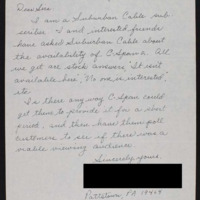 Dear Sirs:
I am a Suburban Cable sub-
scriber. I and interested friends
have asked Suburban Cable about
the availability of C-Span 2. All
we get are stock answers, "It isn't
available here," "No one is interested",
etc.
Is there any way C-Span could
get them to provide it for a short
period, and then have them poll
customers to see if there was a
viable viewing audience?
Sincerely yours,
Pottstown, PA 19464